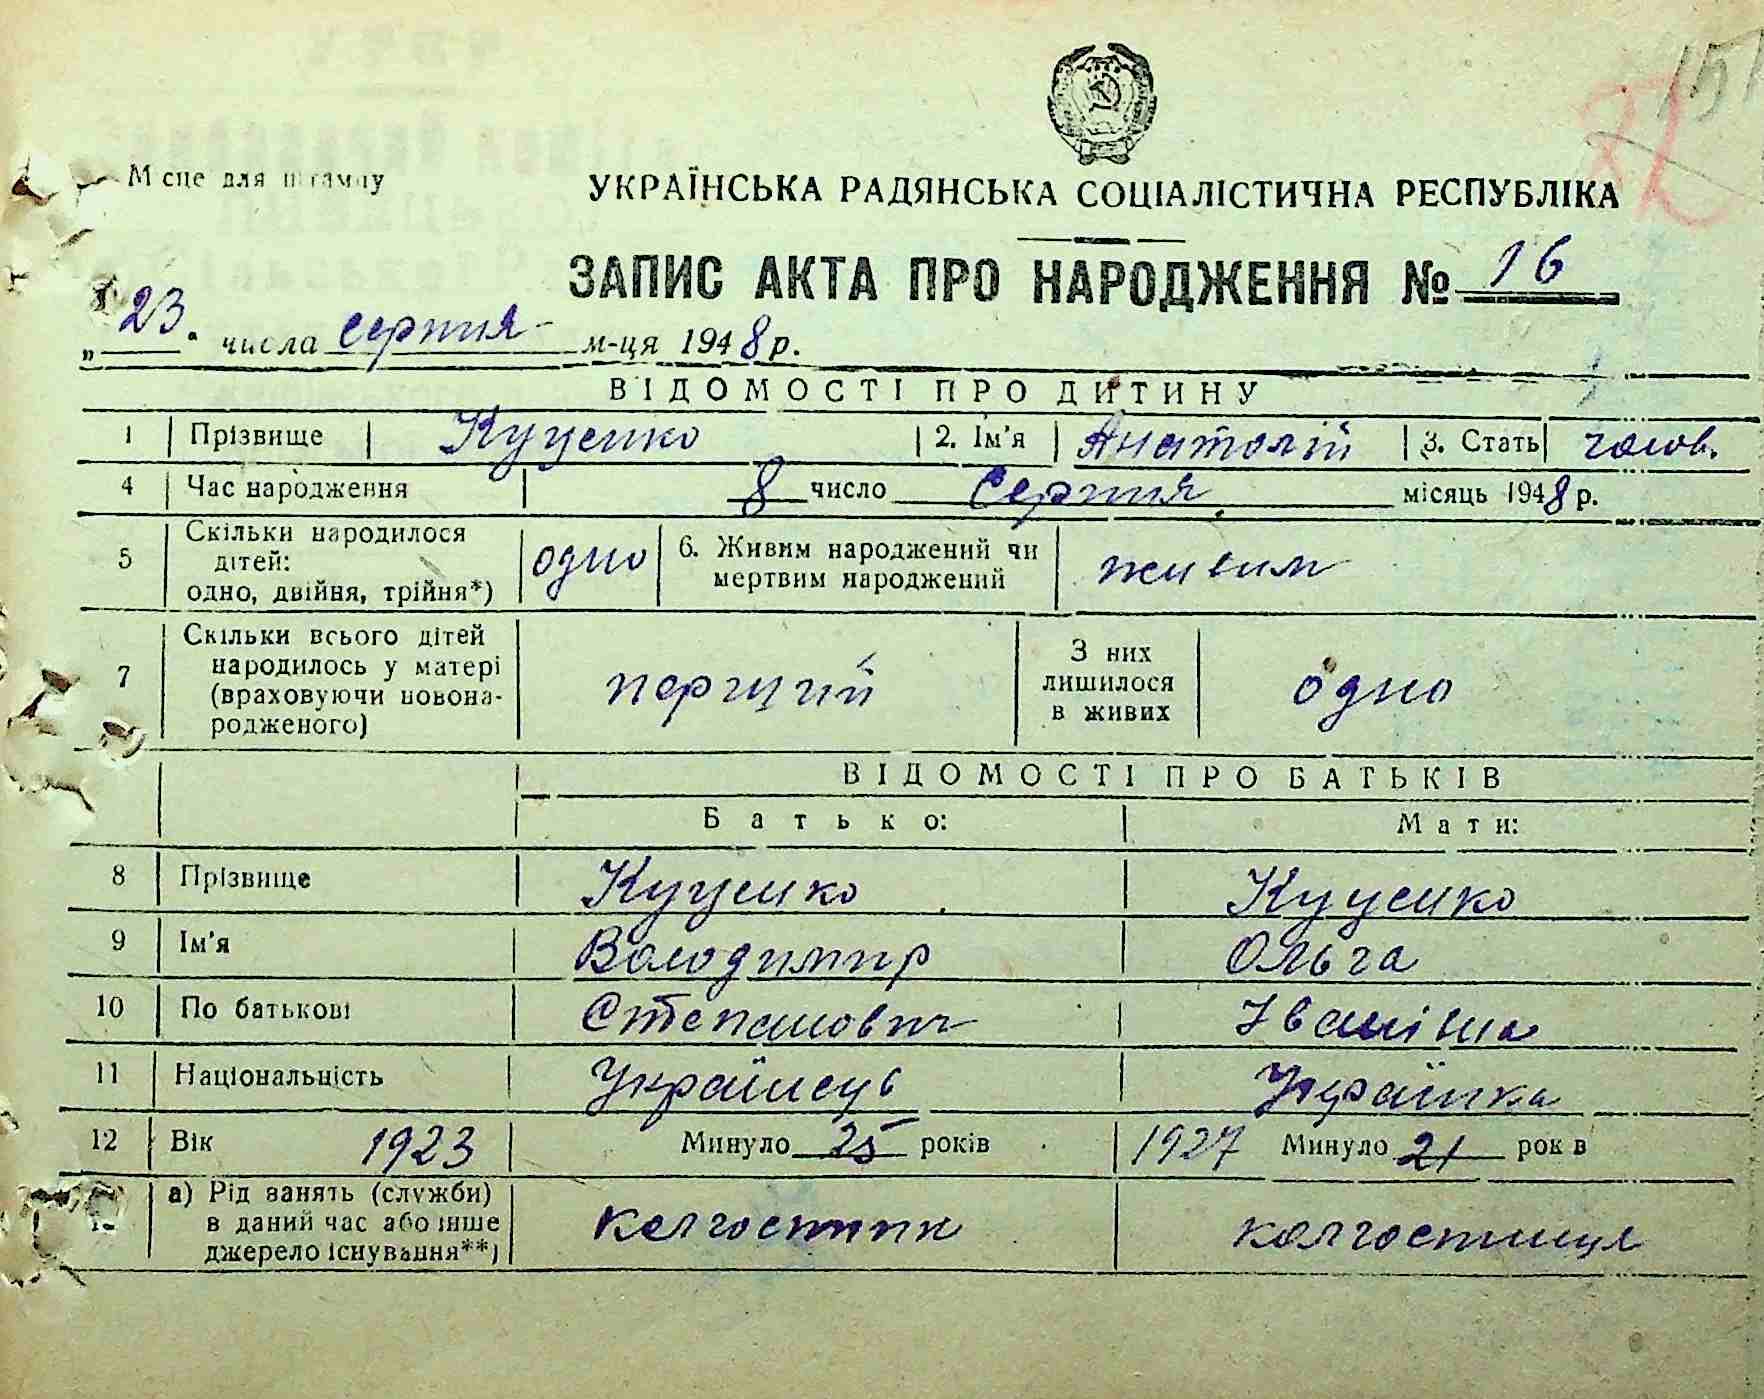 151
Місце для штампу
УКРАЇНСЬКА РАДЯНСЬКА СОЦІАЛІСТИЧНА РЕСПУБЛІКА
ЗАПИС АКТА ПРО НАРОДЖЕННЯ № 16
„23" числа серпня м-ця 1948 р.
ВІДОМОСТІ ПРО ДИТИНУ
1 Прізвище Куценко 2. Ім'я Анатолій 3. Стать чолов.
4 Час народження 8 число серпня місяць 1948 р.
5 Скільки народилося дітей: одно, двійня, трійня*) одно 6. Живим народжений чи мертвим народжений живим
7 Скільки всього дітей народилось у матері (враховуючи новонародженого) перший З них лишилося в живих одно
ВІДОМОСТІ ПРО БАТЬКІВ
Батько: Мати:
8 Прізвище Куценко Куценко
9 Ім'я Володимир Ольга
10 По батькові Степанович Іванівна
11 Національність Українець Українка
12 Вік 1923 Минуло 25 років 1927 Минуло 21 років
а) Рід занять (служби) в даний час або інше джерело існування**) колгоспник колгоспниця